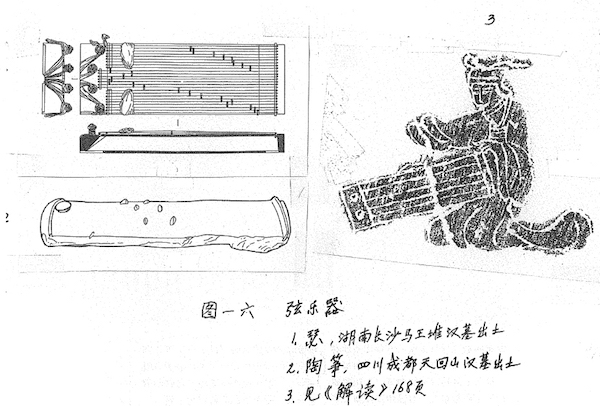 3
2
图一六 弦乐器
1. 瑟，湖南长沙马王堆汉墓出土
2. 陶筝，四川成都天回山汉墓出土
3. 见《解读》168页